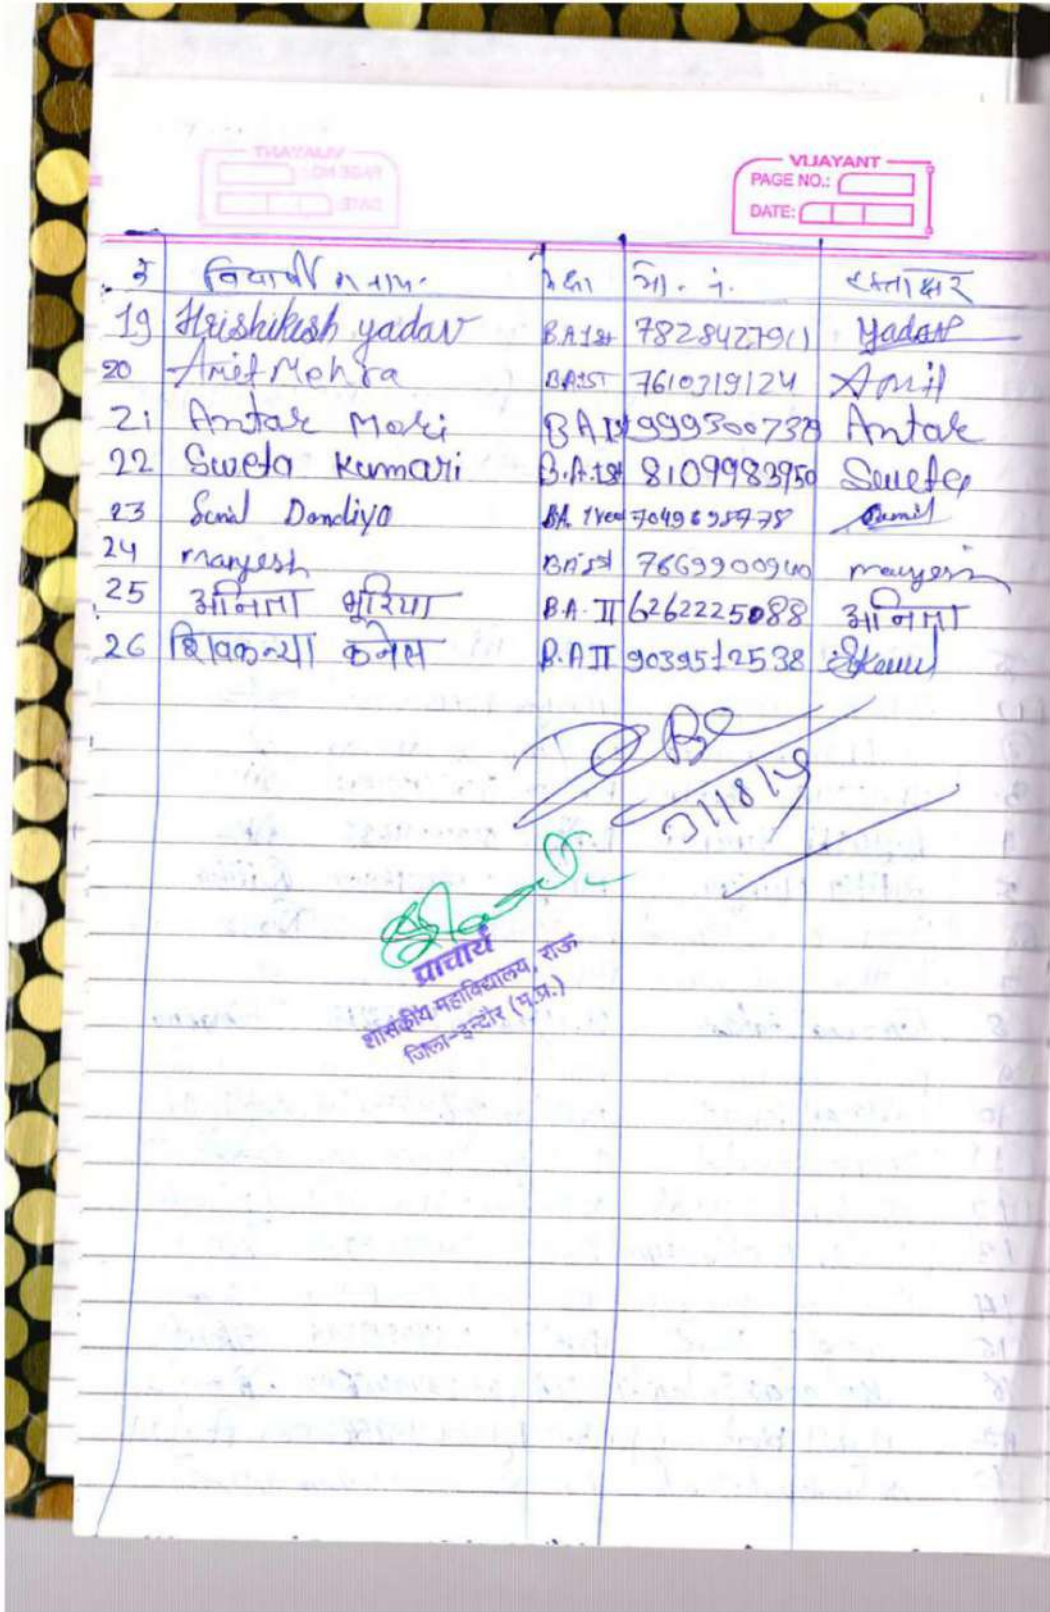 VIJAYANT
PAGE NO.:
DATE:
विद्यार्थी का नाम. कक्षा मो. नं. हस्ताक्षर
19 Hrishikesh yadav BA 1st 7828427911 Yadav
20 Amit Mehra BA 1ST 7610319124 Amit
21 Antar Mori BA Ist 9993007379 Antar
22 Sweta Kumari B.A. 1st 8109983950 Sweta
23 Sunil Dandiya BA 1 Year Sunil
24 manjesh BA 1st 7669900940 manjesh
25 अनिता भूरिया B.A. II 6262225088 अनिता
26 शिवकन्या कनेल B.A II 9039512538
प्राचार्य
शासकीय महाविद्यालय, राऊ
जिला-इन्दौर (म.प्र.)